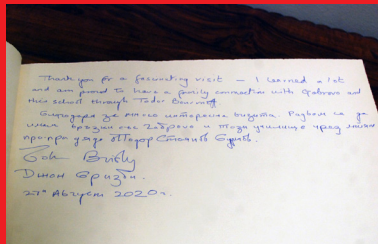 Thank you for a fascinating visit — I learned a lot
and am proud to have a family connection with Gabrovo and
this school through Todor Bourmoff
Благодаря за много интересна визита. Радвам се да
имам връзки със Габрово и този училище чрез моят
пра-пра дядо Тодор Стоянов Бурмов.
John Brisby
Джон Бризби.
27 Август 2020г.